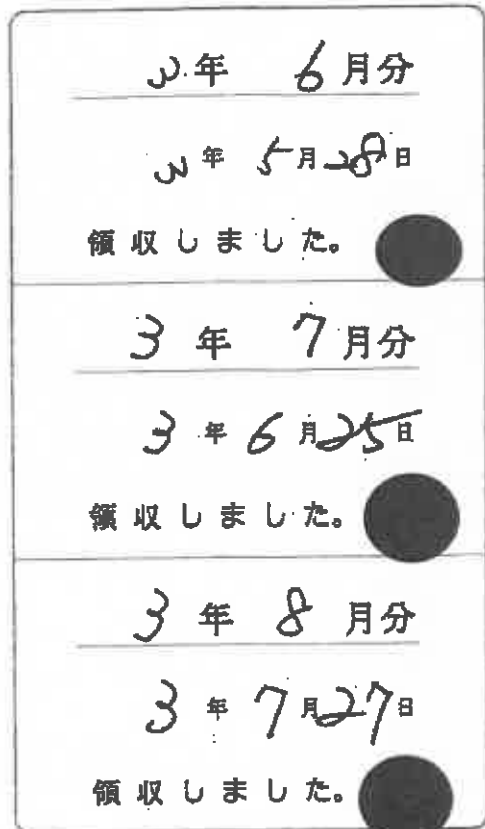 3年 6月分
3年 5月28日
領収しました。
3年 7月分
3年 6月25日
領収しました。
3年 8月分
3年 7月27日
領収しました。